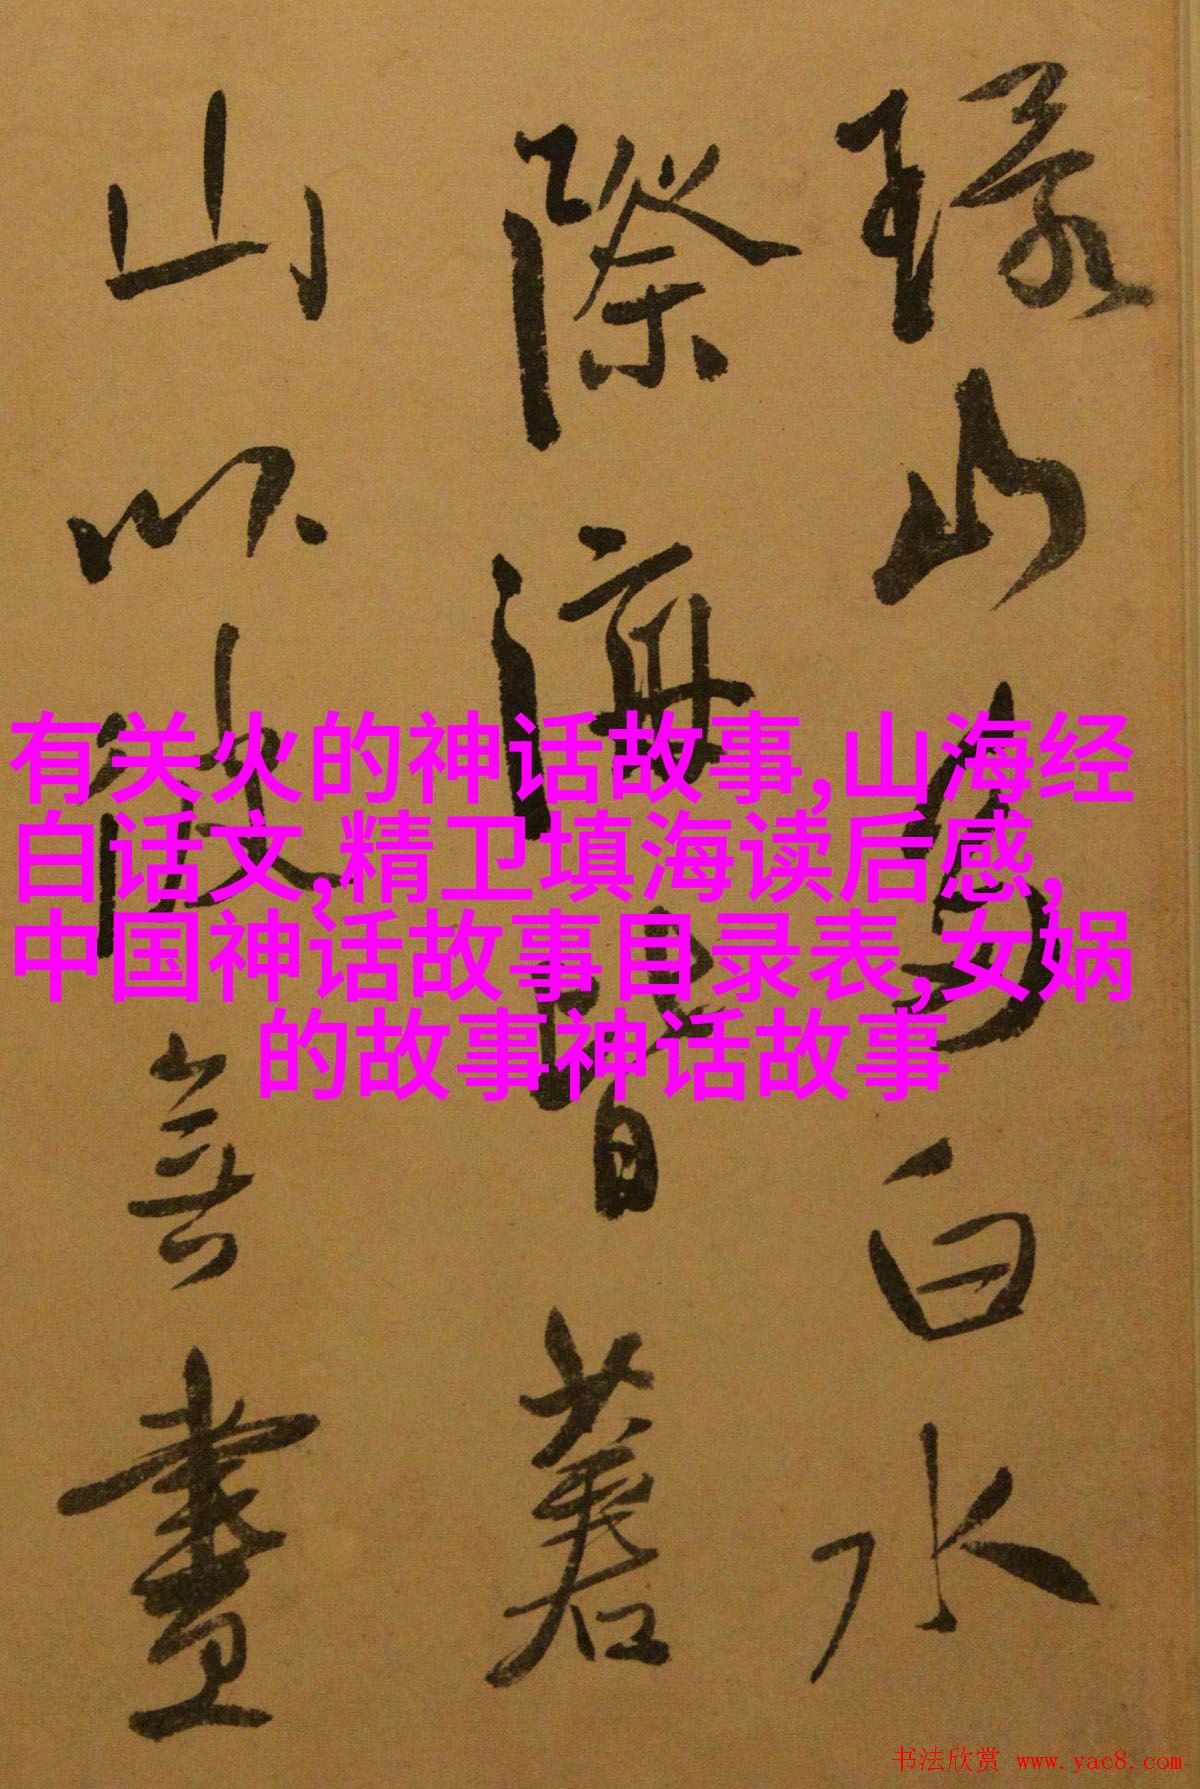 有关火的神话故事,山海经
白话文,精卫填海读后感,
中国神话故事目录表,女娲
的故事神话故事
山白水
際海皆
山以無
书法欣赏 www.yac8.com